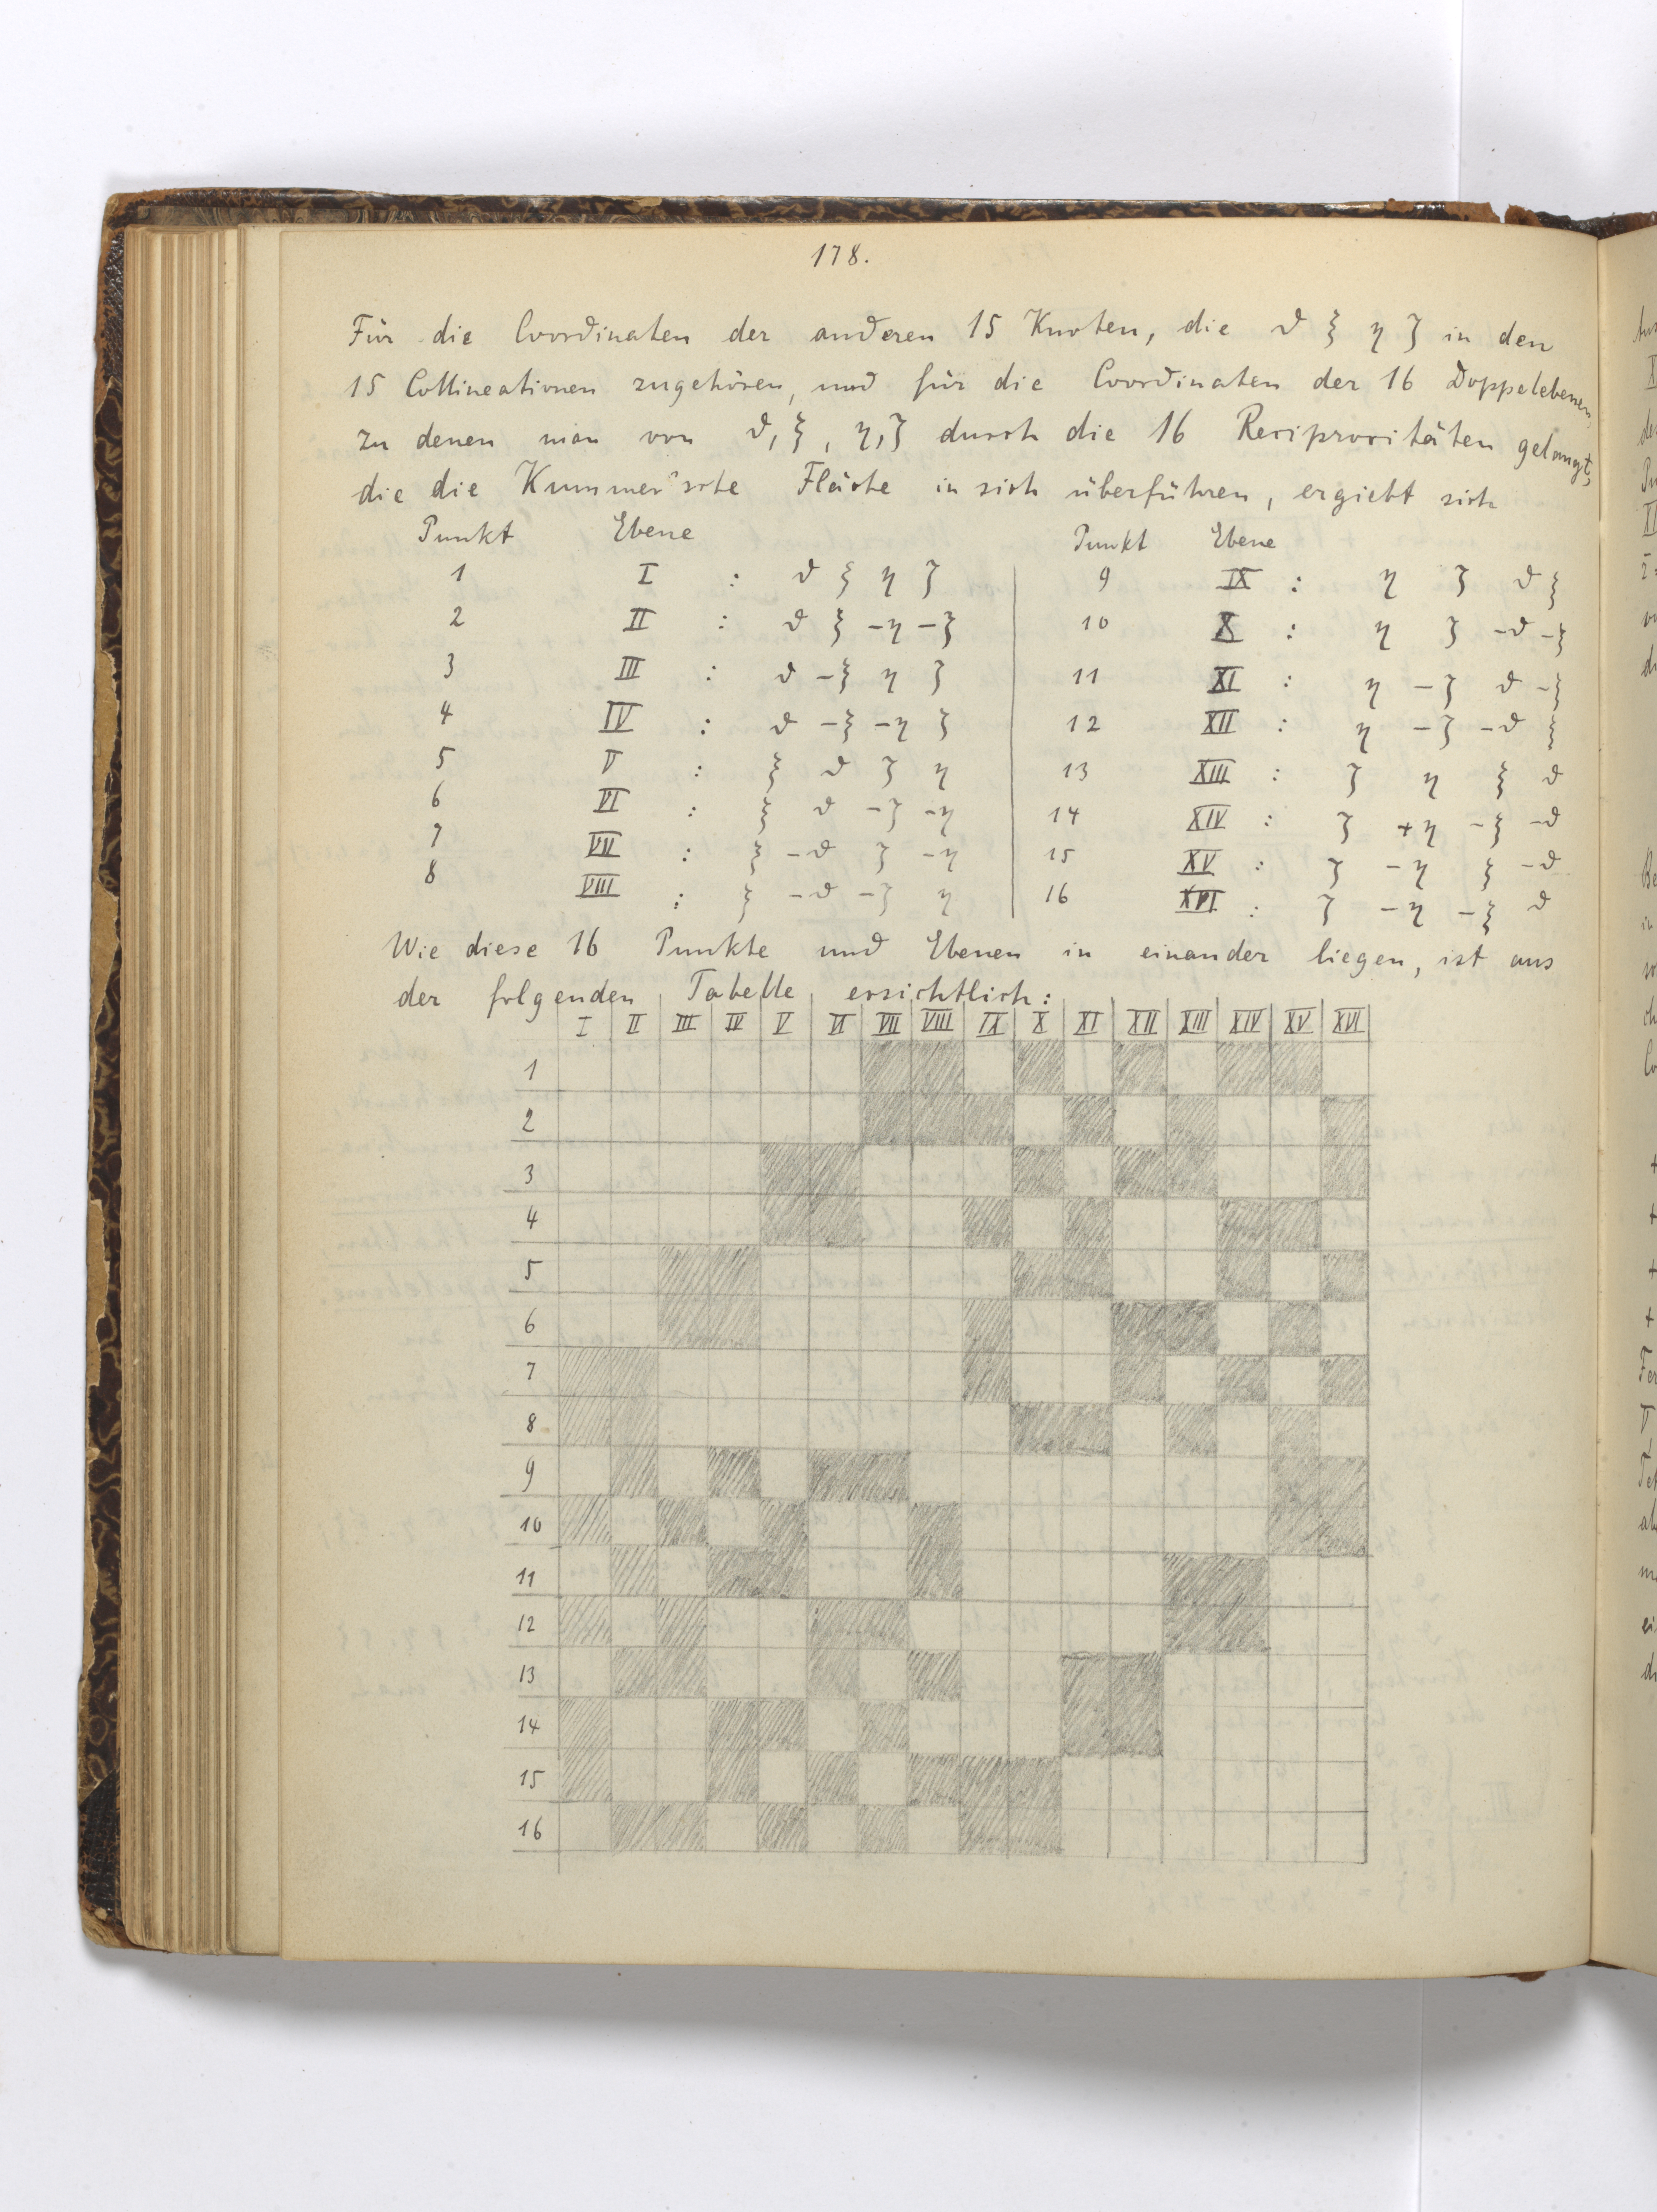 178.
Für die Coordinaten der anderen 15 Knoten, die ϑ ξ η ζ in den
15 Collineationen zugehören, und für die Coordinaten der 16 Doppelebenen,
zu denen man von ϑ, ξ, η, ζ durch die 16 Reciprocitäten gelangt,
die die Kummer'sche Fläche in sich überführen, ergiebt sich
Punkt Ebene
1 I : ϑ ξ η ζ
2 II : ϑ ξ -η -ζ
3 III : ϑ -ξ η ζ
4 IV : ϑ -ξ -η ζ
5 V : ξ ϑ ζ η
6 VI : ξ ϑ -ζ -η
7 VII : ξ -ϑ ζ -η
8 VIII : ξ -ϑ -ζ η
Punkt Ebene
9 IX : η ζ ϑ ξ
10 X : η ζ -ϑ -ξ
11 XI : η -ζ ϑ -ξ
12 XII : η -ζ -ϑ ξ
13 XIII : ζ η ξ ϑ
14 XIV : ζ +η -ξ -ϑ
15 XV : ζ -η ξ -ϑ
16 XVI : ζ -η -ξ ϑ
Wie diese 16 Punkte und Ebenen in einander liegen, ist aus
der folgenden Tabelle ersichtlich:
I II III IV V VI VII VIII IX X XI XII XIII XIV XV XVI
1
2
3
4
5
6
7
8
9
10
11
12
13
14
15
16